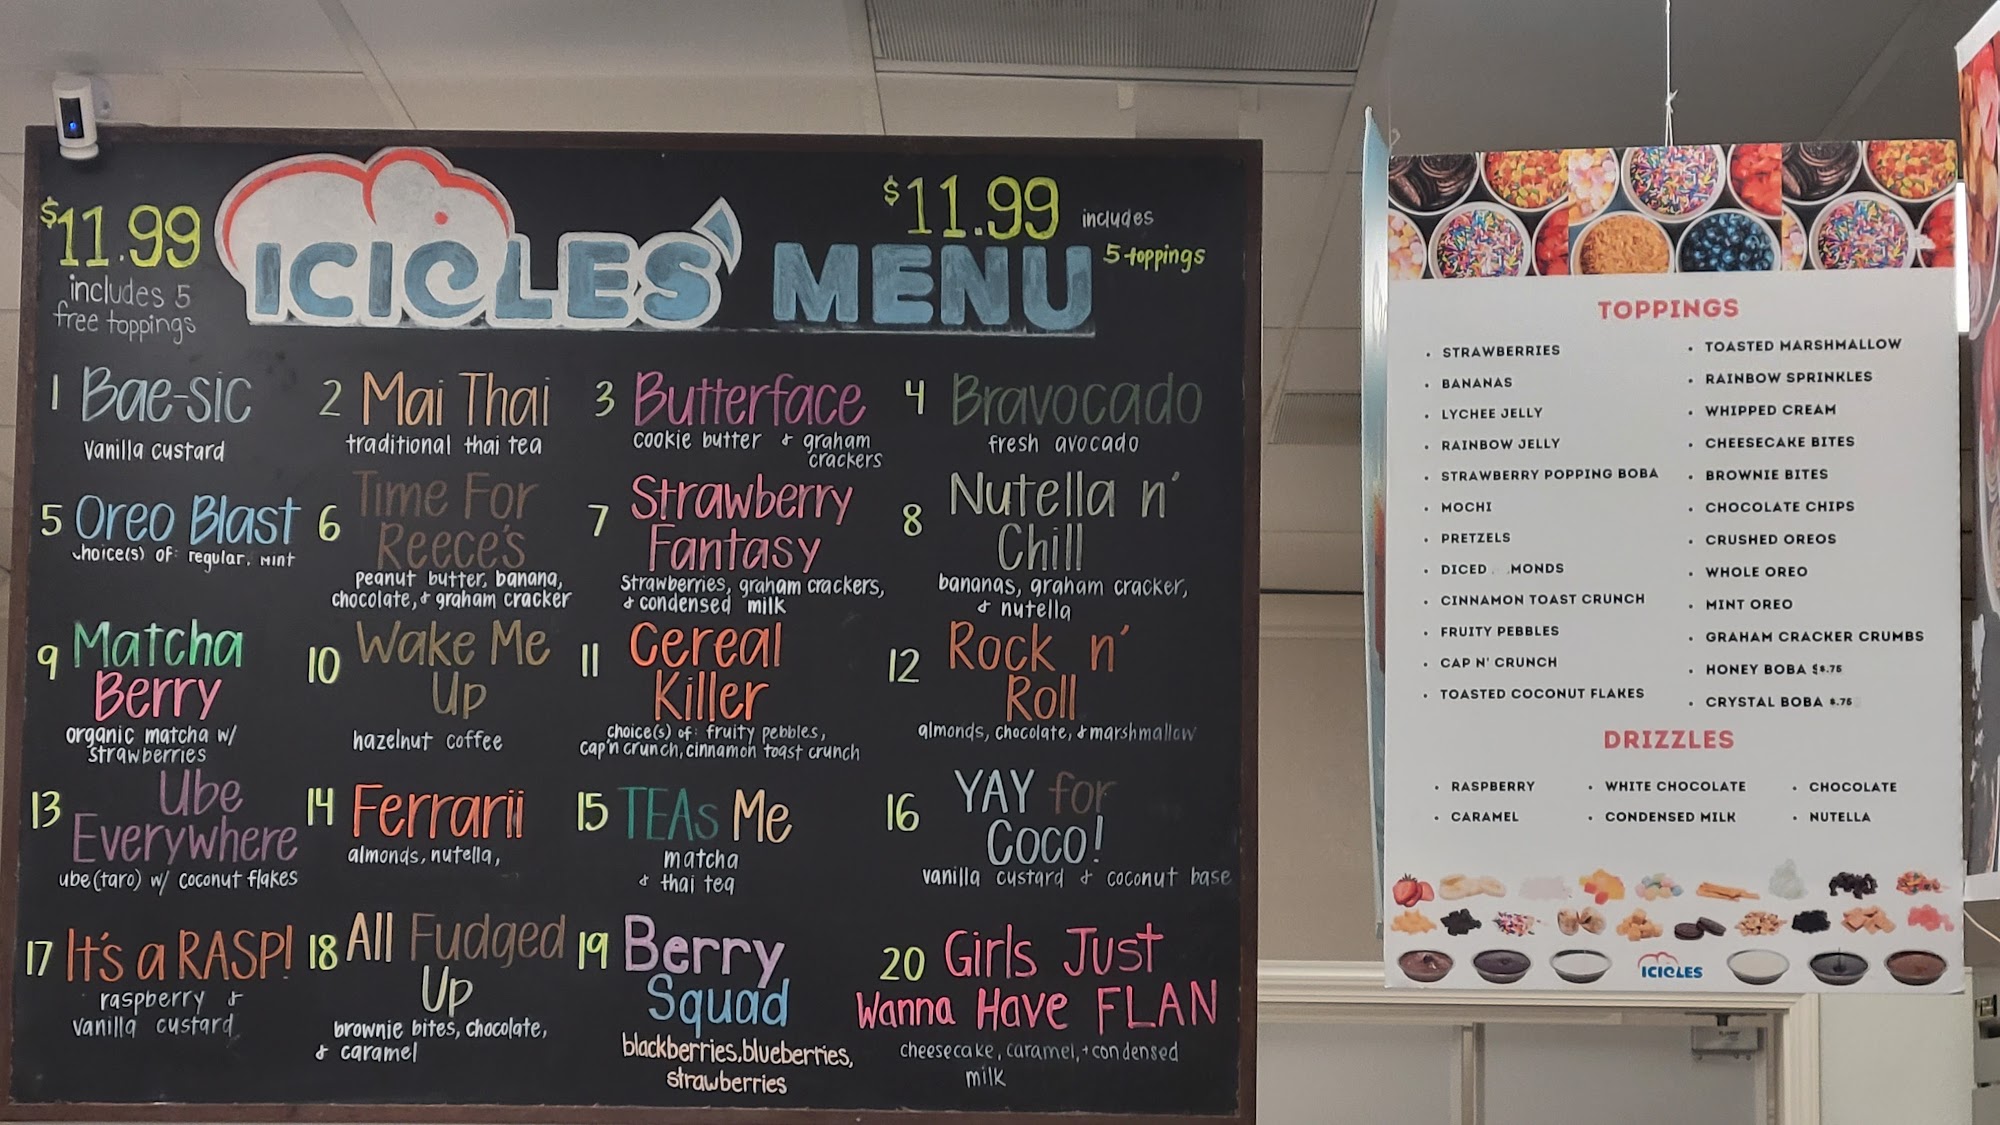 $11.99
includes 5
free toppings
ICICLES' MENU
$11.99 includes
5 toppings
1 Bae-sic
Vanilla custard
2 Mai Thai
traditional thai tea
3 Butterface
cookie butter & graham
crackers
4 Bravocado
fresh avocado
5 Oreo Blast
choice(s) of: regular, MINT
6 Time For
Reece's
peanut butter, banana,
chocolate, & graham cracker
7 Strawberry
Fantasy
strawberries, graham crackers,
& condensed milk
8 Nutella n'
Chill
bananas, graham cracker,
& nutella
9 Matcha
Berry
organic matcha w/
strawberries
10 Wake Me
Up
hazelnut coffee
11 Cereal
Killer
choice(s) of: fruity pebbles,
cap'n crunch, cinnamon toast crunch
12 Rock n'
Roll
almonds, chocolate, & marshmallow
13 Ube
Everywhere
ube (taro) w/ coconut flakes
14 Ferrarii
almonds, nutella,
15 TEAs Me
matcha
& thai tea
16 YAY for
COCO!
vanilla custard & coconut base
17 It's a RASP!
raspberry &
vanilla custard
18 All Fudged
Up
brownie bites, chocolate,
& caramel
19 Berry
Squad
blackberries, blueberries,
strawberries
20 Girls Just
Wanna Have FLAN
cheesecake, caramel, + condensed
milk
TOPPINGS
• STRAWBERRIES
• BANANAS
• LYCHEE JELLY
• RAINBOW JELLY
• STRAWBERRY POPPING BOBA
• MOCHI
• PRETZELS
• DICED MONDS
• CINNAMON TOAST CRUNCH
• FRUITY PEBBLES
• CAP N' CRUNCH
• TOASTED COCONUT FLAKES
• TOASTED MARSHMALLOW
• RAINBOW SPRINKLES
• WHIPPED CREAM
• CHEESECAKE BITES
• BROWNIE BITES
• CHOCOLATE CHIPS
• CRUSHED OREOS
• WHOLE OREO
• MINT OREO
• GRAHAM CRACKER CRUMBS
• HONEY BOBA $.75
• CRYSTAL BOBA $.75
DRIZZLES
• RASPBERRY
• WHITE CHOCOLATE
• CHOCOLATE
• CARAMEL
• CONDENSED MILK
• NUTELLA
ICICLES